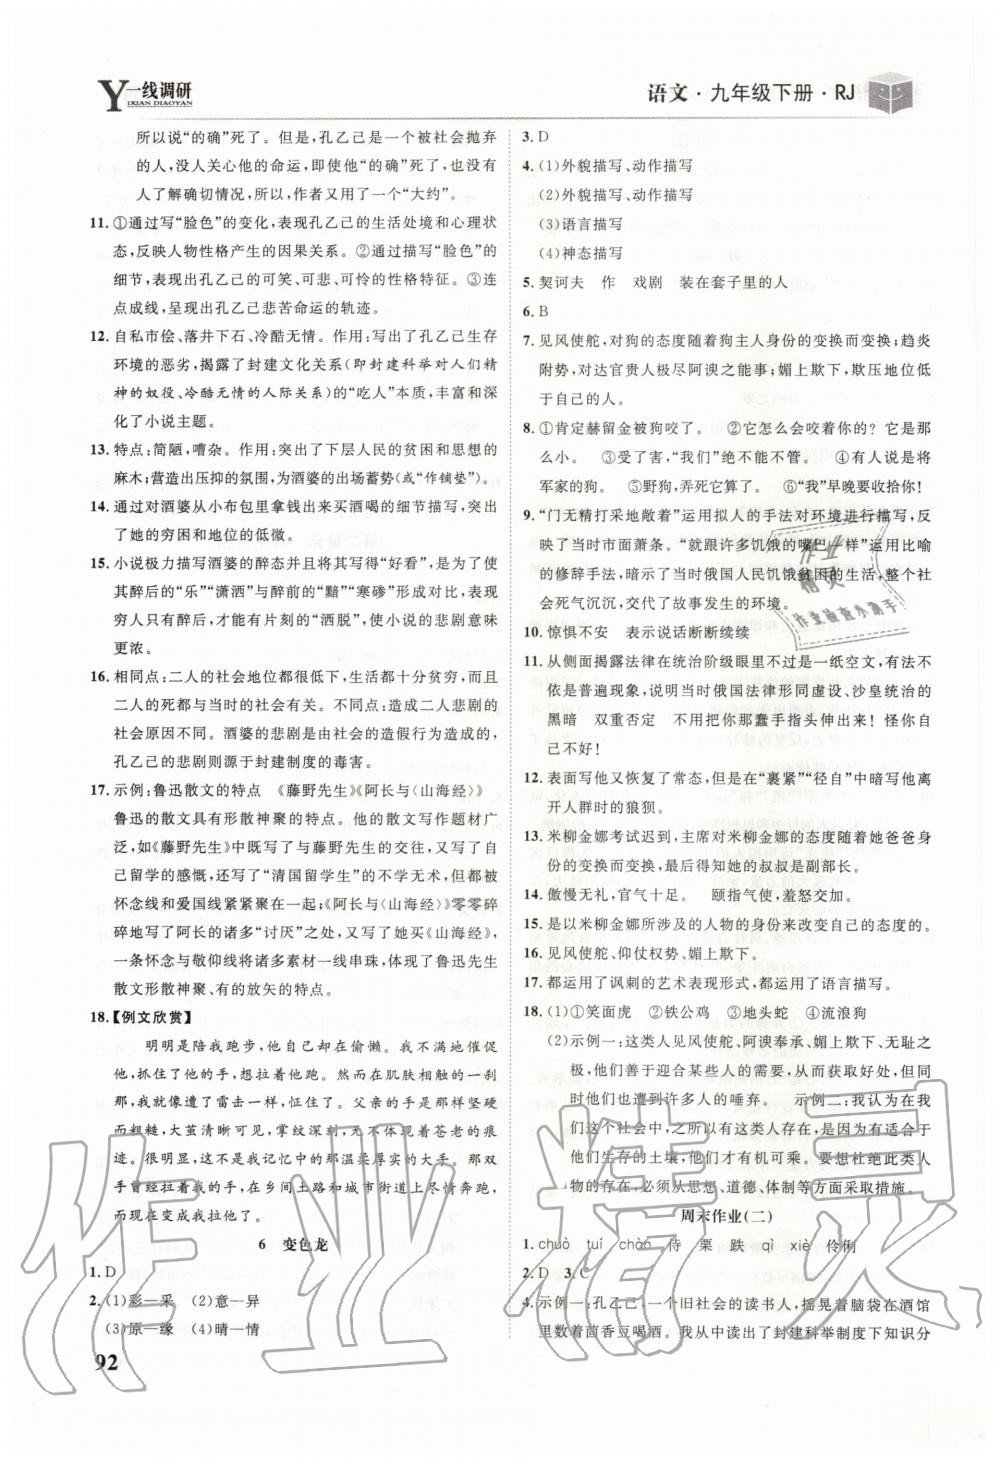 Y一线调研
YIXIAN DIAOYAN
语文·九年级下册·RJ
所以说“的确”死了。但是,孔乙己是一个被社会抛弃
的人,没人关心他的命运,即使他“的确”死了,也没有
人了解确切情况,所以,作者又用了一个“大约”。
11. ①通过写“脸色”的变化,表现孔乙己的生活处境和心理状
态,反映人物性格产生的因果关系。②通过描写“脸色”的
细节,表现出孔乙己的可笑、可悲、可怜的性格特征。③连
点成线,呈现出孔乙己悲苦命运的轨迹。
12. 自私市侩、落井下石、冷酷无情。作用:写出了孔乙己生存
环境的恶劣,揭露了封建文化关系(即封建科举对人们精
神的奴役、冷酷无情的人际关系)的“吃人”本质,丰富和深
化了小说主题。
13. 特点:简陋,嘈杂。作用:突出了下层人民的贫困和思想的
麻木;营造出压抑的氛围,为酒婆的出场蓄势(或“作铺垫”)。
14. 通过对酒婆从小布包里拿钱出来买酒喝的细节描写,突出
了她的穷困和地位的低微。
15. 小说极力描写酒婆的醉态并评其醉得“好看”,是为了使
其醉后的“乐”“潇洒”与醉前的“黯”“寒碜”形成对比,表现
穷人只有醉后,才能有片刻的“洒脱”,使小说的悲剧意味
更浓。
16. 相同点:二人的社会地位都很低下,生活都十分贫穷,而且
二人的死都与当时的社会有关。不同点:造成二人悲剧的
原因不同。酒婆的悲剧是由社会的造假行为造成的,
孔乙己的悲剧则源于封建制度的毒害。
17. 示例:鲁迅散文的特点　《藤野先生》《阿长与〈山海经〉》
鲁迅的散文具有形散神聚的特点。他的散文写作题材广
泛,如《藤野先生》中既写了与藤野先生的交往,又写了自
己留学的感慨,还写了“清国留学生”的不学无术,但却都
被怀念线和爱国线紧紧聚在一起;《阿长与〈山海经〉》零零碎
碎地写了阿长的诸多“讨厌”之处,又写了她买《山海经》,
一条怀念与敬仰线将诸多素材一线串珠,体现了鲁迅先生
散文形散神聚、有的放矢的特点。
18.【例文欣赏】
明明是陪我跑步,他自己却在偷懒。我不满地催促
他,伸手抓住他的手,想拉着他。在肌肤相触的一刹
那,我就像遭了雷击一样,怔住了。父亲的手是那样坚硬
而粗糙,大茧清晰可见,掌纹深刻,天然带着苍老的痕
迹。很明显,这不是我记忆中的那温柔厚实的大手。那双
手曾经拉着我的手,在乡间土路和城市街道上尽情奔跑,
而现在变成我拉他了。
6　变色龙
1. D
2. (1)彩—采　(2)意—异
(3)原—缘　(4)晴—情
92
3. D
4. (1)外貌描写、动作描写
(2)外貌描写、动作描写
(3)语言描写
(4)神态描写
5. 契诃夫　作　戏剧　装在套子里的人
6. B
7. 见风使舵,对狗的态度随着狗主人身份的变换而变换;趋炎
附势,对达官贵人极尽阿谀之能事;媚上欺下,欺压地位低
于自己的人。
8. ①肯定赫留金被狗咬了。　②它怎么会咬人?它是那么
小。　③受了害,“我们”绝不能不管。　④有人说这是将
军家的狗。　⑤野狗,弄死它算了。　⑥“我”早晚要收拾你!
9. “门无精打采地敞着”运用拟人的手法对环境进行描写,反
映了当时市面萧条。“就跟许多饥饿的嘴巴一样”运用比喻
的修辞手法,暗示了当时俄国人民饥饿贫困的生活,整个社
会死气沉沉,交代了故事发生的环境。
10. 惊惧不安　表示说话断断续续
11. 从侧面揭露法律在统治阶级眼里不过是一纸空文,有法不
依是普遍现象,说明当时俄国法律形同虚设、沙皇统治的
黑暗　双重否定　不用把你那蠢手指头伸出来!怪你自
己不好!
12. 表面写他又恢复了常态,但在“裹紧”“径自”中暗写他离
开人群时的狼狈。
13. 米柳金娜考试迟到,主席对米柳金娜的态度随着她爸爸身
份的变换而变换,最后得知她的叔叔是副部长。
14. 傲慢无礼,官气十足。　颐指气使,羞怒交加。
15. 是以米柳金娜所涉及的人物的身份来改变自己的态度的。
16. 见风使舵、仰仗权势、媚上欺下。
17. 都运用了讽刺的艺术表现形式,都进行了语言描写。
18. (1)①笑面虎　②铁公鸡　③地头蛇　④流浪狗
(2)示例一:这类人见风使舵、阿谀奉承、攀附权贵,但
他们能够迎合某些人的需要,从而获取好处,但同
时他们也遭到许多人的唾弃。　示例二:我认为在我
们这个社会中,之所以有这类人存在,是因为有适合于
他们生存的土壤,他们才有机可乘。要想杜绝此类人
物的存在,必须从思想、道德、体制等方面入手。
周末作业(二)
1. chuò　tuí　chàn　侍　栗　跌　qì　xiè　伶俐
2. D　3. C
4. 示例一:孔乙己,一个旧社会的读书人,摇晃着脑袋在酒馆
里数着茴香豆喝酒。我从中读出了封建科举制度下知识分
作业精灵
作业检查小助手
作业精灵